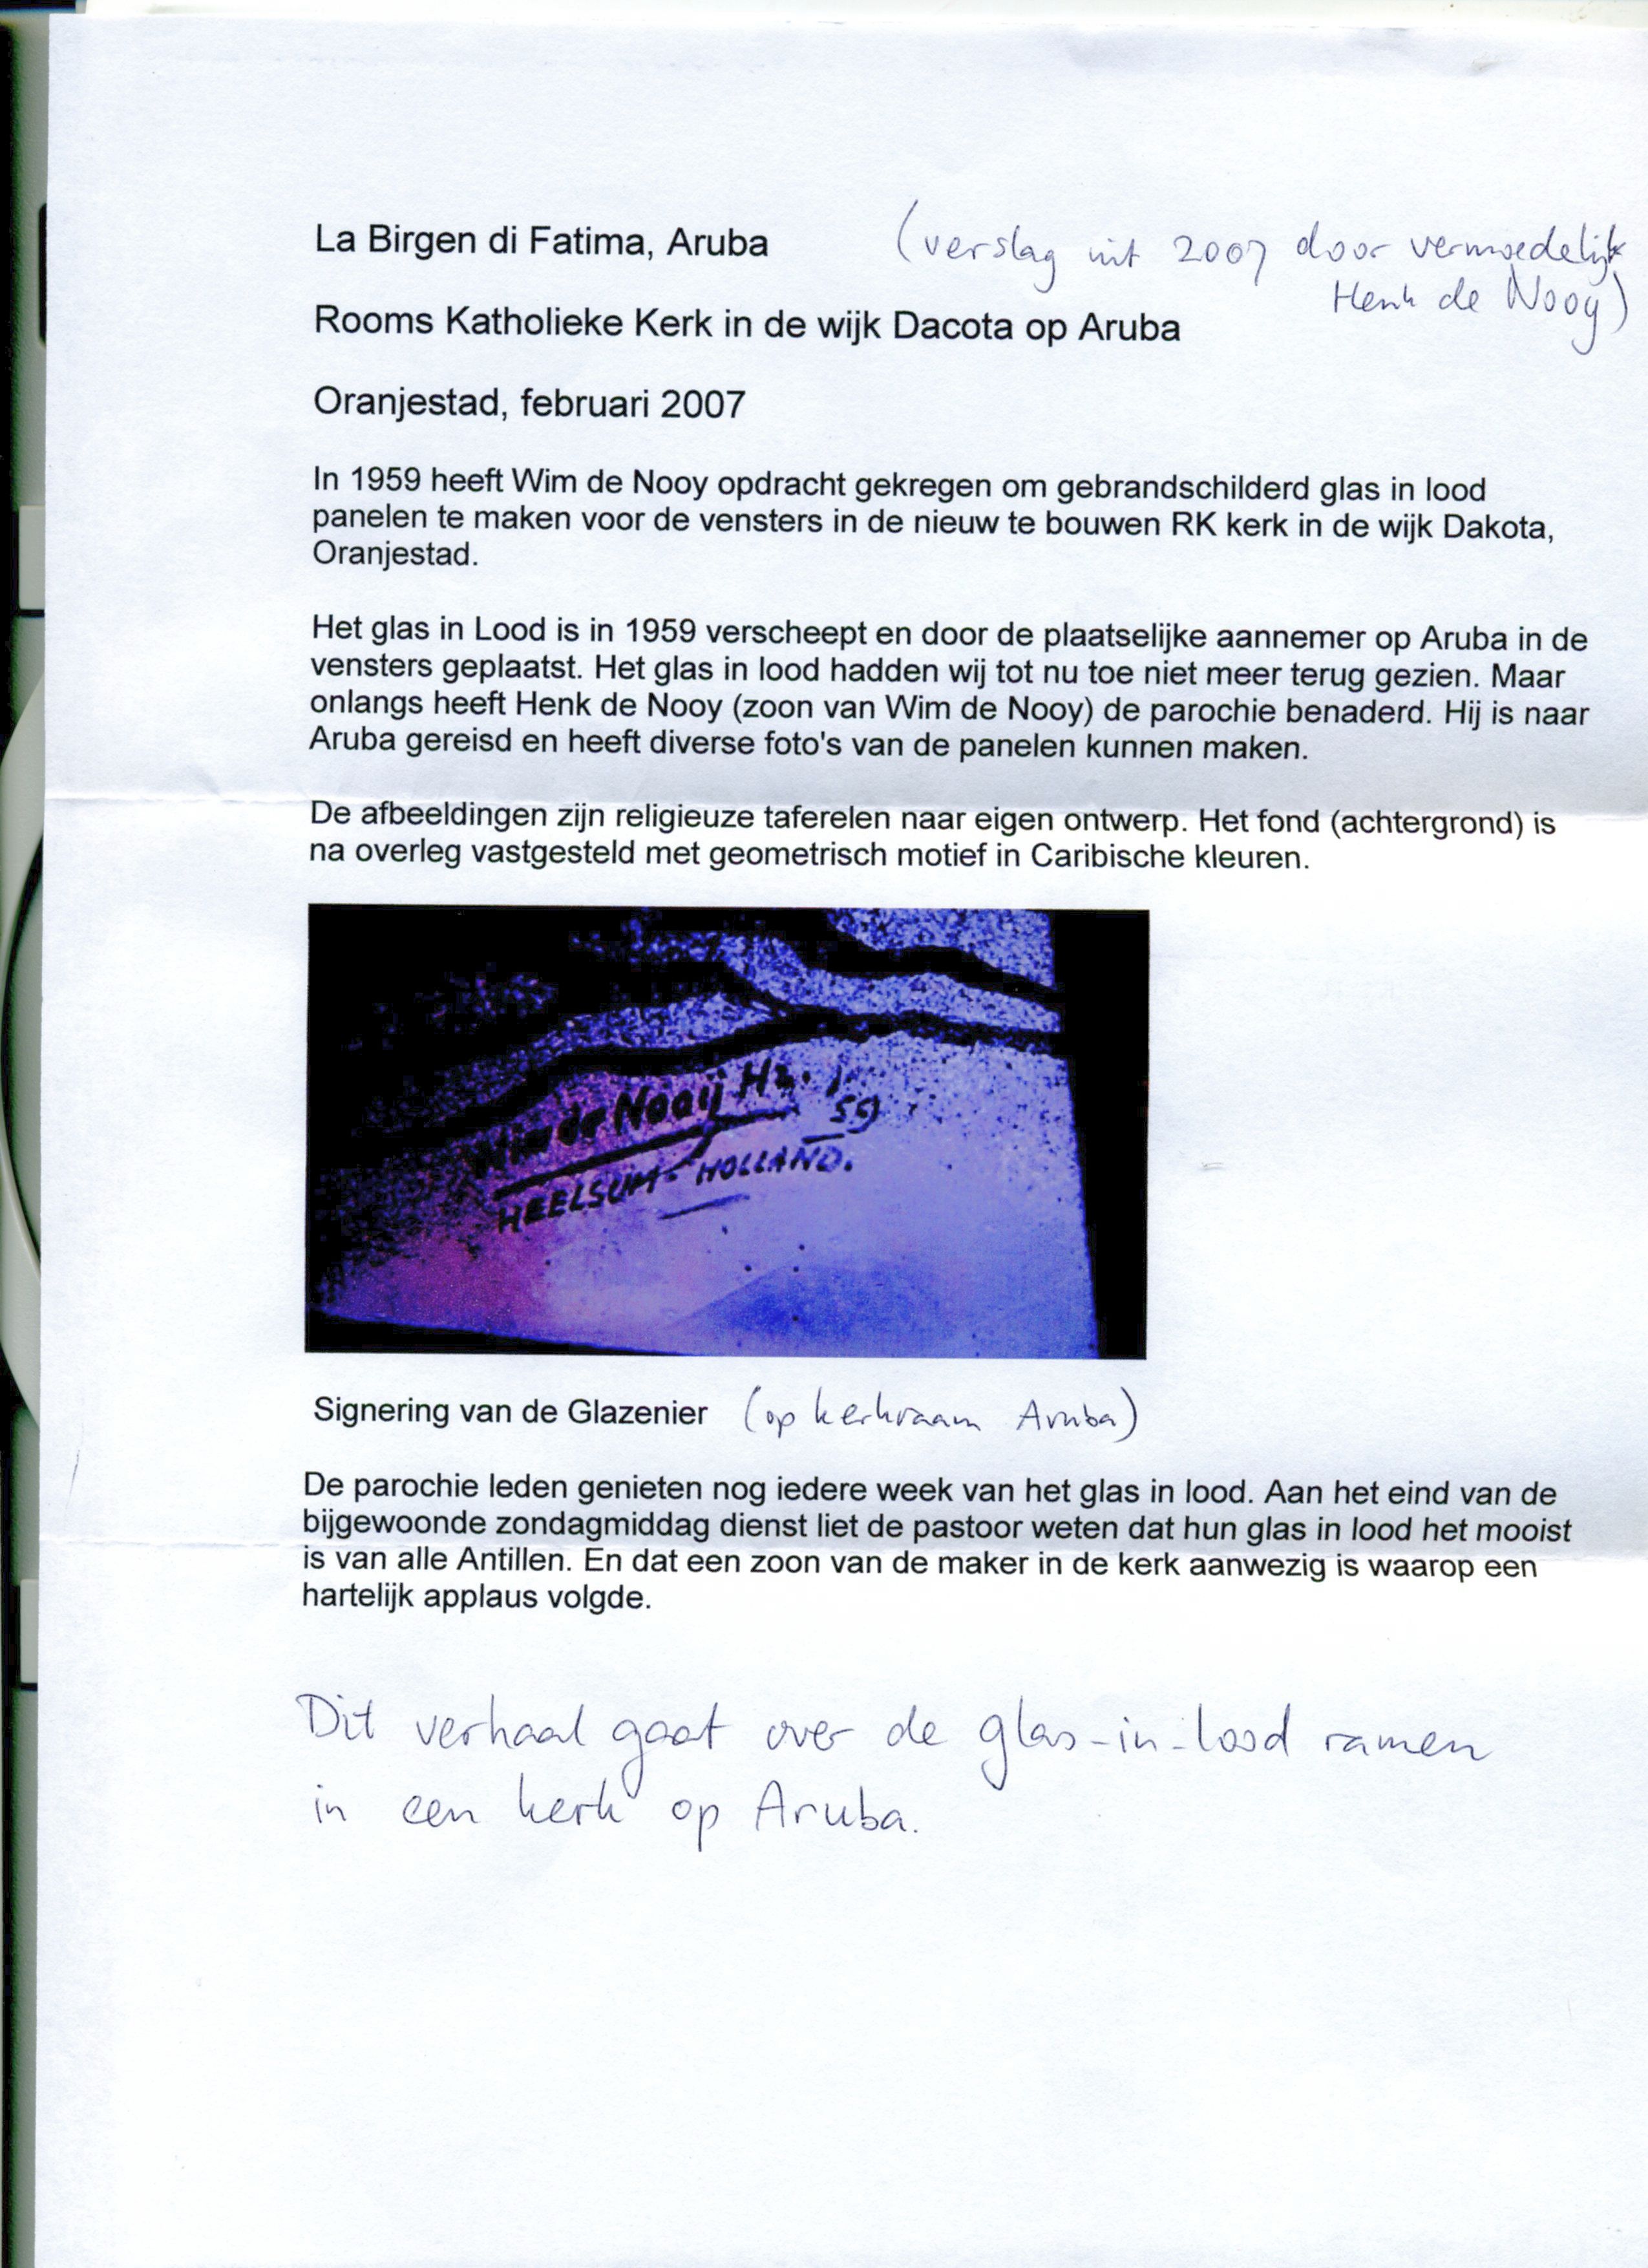 La Birgen di Fatima, Aruba
(verslag uit 2007 door vermoedelijk
Henk de Nooy)
Rooms Katholieke Kerk in de wijk Dacota op Aruba
Oranjestad, februari 2007
In 1959 heeft Wim de Nooy opdracht gekregen om gebrandschilderd glas in lood
panelen te maken voor de vensters in de nieuw te bouwen RK kerk in de wijk Dakota,
Oranjestad.
Het glas in Lood is in 1959 verscheept en door de plaatselijke aannemer op Aruba in de
vensters geplaatst. Het glas in lood hadden wij tot nu toe niet meer terug gezien. Maar
onlangs heeft Henk de Nooy (zoon van Wim de Nooy) de parochie benaderd. Hij is naar
Aruba gereisd en heeft diverse foto's van de panelen kunnen maken.
De afbeeldingen zijn religieuze taferelen naar eigen ontwerp. Het fond (achtergrond) is
na overleg vastgesteld met geometrisch motief in Caribische kleuren.
Wim de Nooij Hz. '59
HEELSUM - HOLLAND.
Signering van de Glazenier (op kerkraam Aruba)
De parochie leden genieten nog iedere week van het glas in lood. Aan het eind van de
bijgewoonde zondagmiddag dienst liet de pastoor weten dat hun glas in lood het mooist
is van alle Antillen. En dat een zoon van de maker in de kerk aanwezig is waarop een
hartelijk applaus volgde.
Dit verhaal gaat over de glas-in-lood ramen
in een kerk op Aruba.